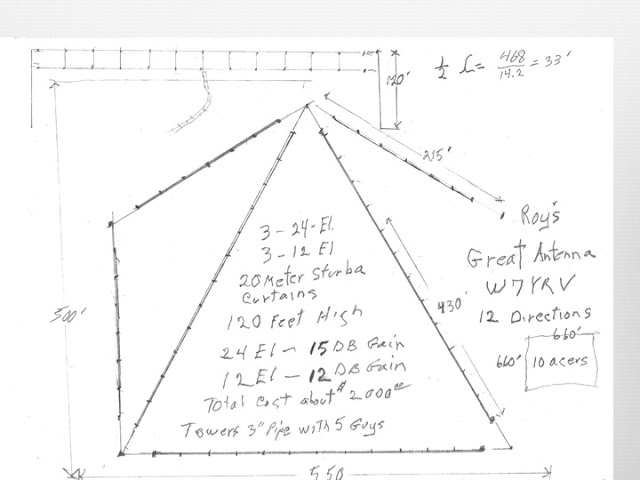 120'
½ L = 468/14.2 = 33'
215'
Roy's
Great Antenna
W7YRV
12 Directions
660'
660'
10 acers
3 - 24 - El.
3 - 12 El
20 Meter Sturba
Curtains
120 Feet High
24 El - 15 DB Gain
12 El - 12 DB Gain
Total Cost about $2000.00
Towers 3" Pipe with 5 Guys
430'
500'
550